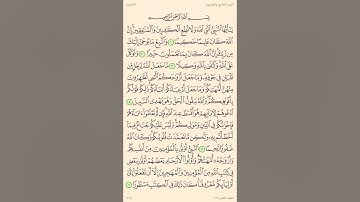 بِسْمِ اللَّهِ الرَّحْمَٰنِ الرَّحِيمِ
يَٰٓأَيُّهَا ٱلنَّبِيُّ ٱتَّقِ ٱللَّهَ وَلَا تُطِعِ ٱلْكَٰفِرِينَ وَٱلْمُنَٰفِقِينَ إِنَّ
ٱللَّهَ كَانَ عَلِيمًا حَكِيمًا ١ وَٱتَّبِعْ مَا يُوحَىٰٓ إِلَيْكَ
مِن رَّبِّكَ إِنَّ ٱللَّهَ كَانَ بِمَا تَعْمَلُونَ خَبِيرًا ٢
وَتَوَكَّلْ عَلَى ٱللَّهِ وَكَفَىٰ بِٱللَّهِ وَكِيلًا ٣ مَّا جَعَلَ ٱللَّهُ لِرَجُلٍ مِّن
قَلْبَيْنِ فِي جَوْفِهِۦ وَمَا جَعَلَ أَزْوَٰجَكُمُ ٱلَّٰٓـِٔي تُظَٰهِرُونَ
مِنْهُنَّ أُمَّهَٰتِكُمْ وَمَا جَعَلَ أَدْعِيَآءَكُمْ أَبْنَآءَكُمْ ذَٰلِكُمْ قَوْلُكُم
بِأَفْوَٰهِكُمْ وَٱللَّهُ يَقُولُ ٱلْحَقَّ وَهُوَ يَهْدِي ٱلسَّبِيلَ ٤
ٱدْعُوهُمْ لِءَابَآئِهِمْ هُوَ أَقْسَطُ عِندَ ٱللَّهِ فَإِن لَّمْ تَعْلَمُوٓا۟ ءَابَآءَهُمْ
فَإِخْوَٰنُكُمْ فِي ٱلدِّينِ وَمَوَٰلِيكُمْ وَلَيْسَ عَلَيْكُمْ جُنَاحٌ فِيمَآ
أَخْطَأْتُم بِهِۦ وَلَٰكِن مَّا تَعَمَّدَتْ قُلُوبُكُمْ وَكَانَ ٱللَّهُ
غَفُورًا رَّحِيمًا ٥ ٱلنَّبِيُّ أَوْلَىٰ بِٱلْمُؤْمِنِينَ مِنْ أَنفُسِهِمْ
وَأَزْوَٰجُهُۥٓ أُمَّهَٰتُهُمْ وَأُو۟لُوا۟ ٱلْأَرْحَامِ بَعْضُهُمْ أَوْلَىٰ بِبَعْضٍ
فِي كِتَٰبِ ٱللَّهِ مِنَ ٱلْمُؤْمِنِينَ وَٱلْمُهَٰجِرِينَ إِلَّآ أَن تَفْعَلُوٓا۟ إِلَىٰٓ
أَوْلِيَآئِكُم مَّعْرُوفًا كَانَ ذَٰلِكَ فِي ٱلْكِتَٰبِ مَسْطُورًا ٦